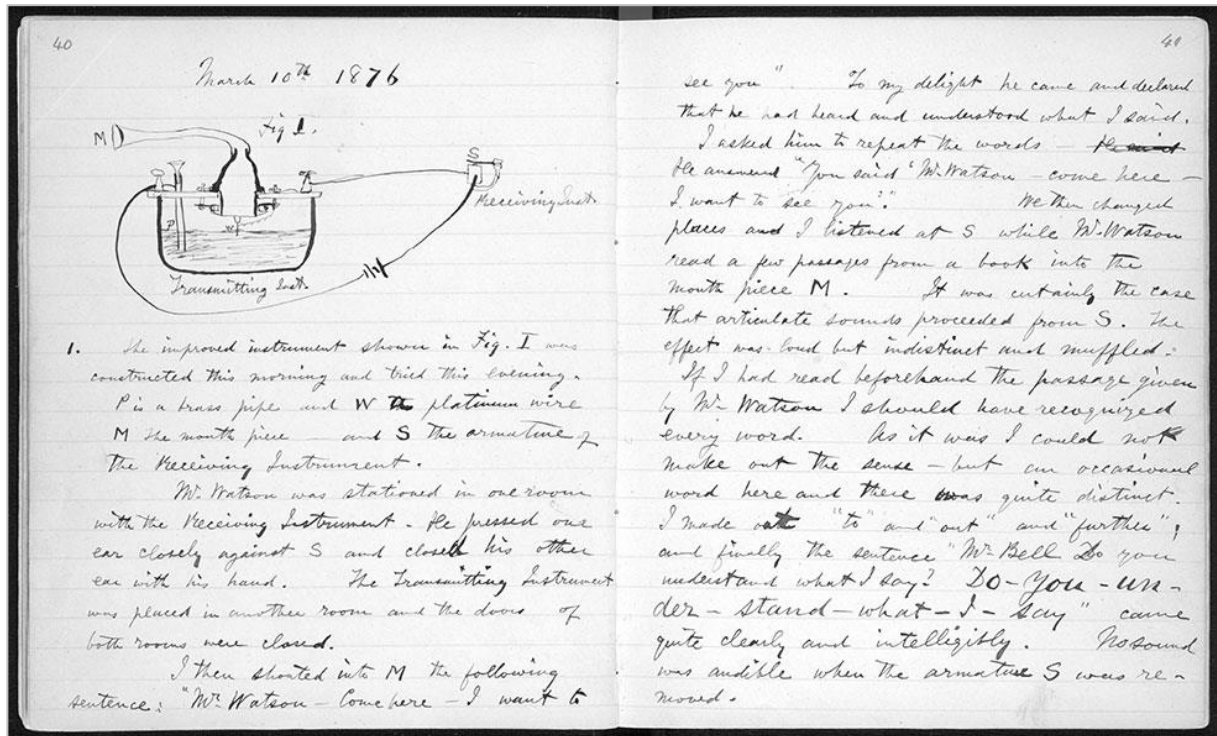 40
March 10th 1876
Fig 1.
M
S
Receiving Inst.
P
W
Transmitting Inst.
1. The improved instrument shown in Fig. I was
constructed this morning and tried this evening.
P is a brass pipe and W the platinum wire
M the mouth piece — and S the armature of
the Receiving Instrument.
Mr. Watson was stationed in one room
with the Receiving Instrument. He pressed one
ear closely against S and closed his other
ear with his hand. The Transmitting Instrument
was placed in another room and the doors of
both rooms were closed.
I then shouted into M the following
sentence: "Mr. Watson – Come here – I want to
41
see you". To my delight he came and declared
that he had heard and understood what I said.
I asked him to repeat the words –
He answered "You said 'Mr. Watson – come here –
I want to see you'." We then changed
places and I listened at S while Mr. Watson
read a few passages from a book into the
mouth piece M. It was certainly the case
that articulate sounds proceeded from S. The
effect was loud but indistinct and muffled.
If I had read beforehand the passage given
by Mr. Watson I should have recognized
every word. As it was I could not
make out the sense – but an occasional
word here and there was quite distinct.
I made out "to" and "out" and "further";
and finally the sentence "Mr. Bell Do you
understand what I say? Do – you – un –
der – stand – what – I – say" came
quite clearly and intelligibly. No sound
was audible when the armature S was re –
moved.